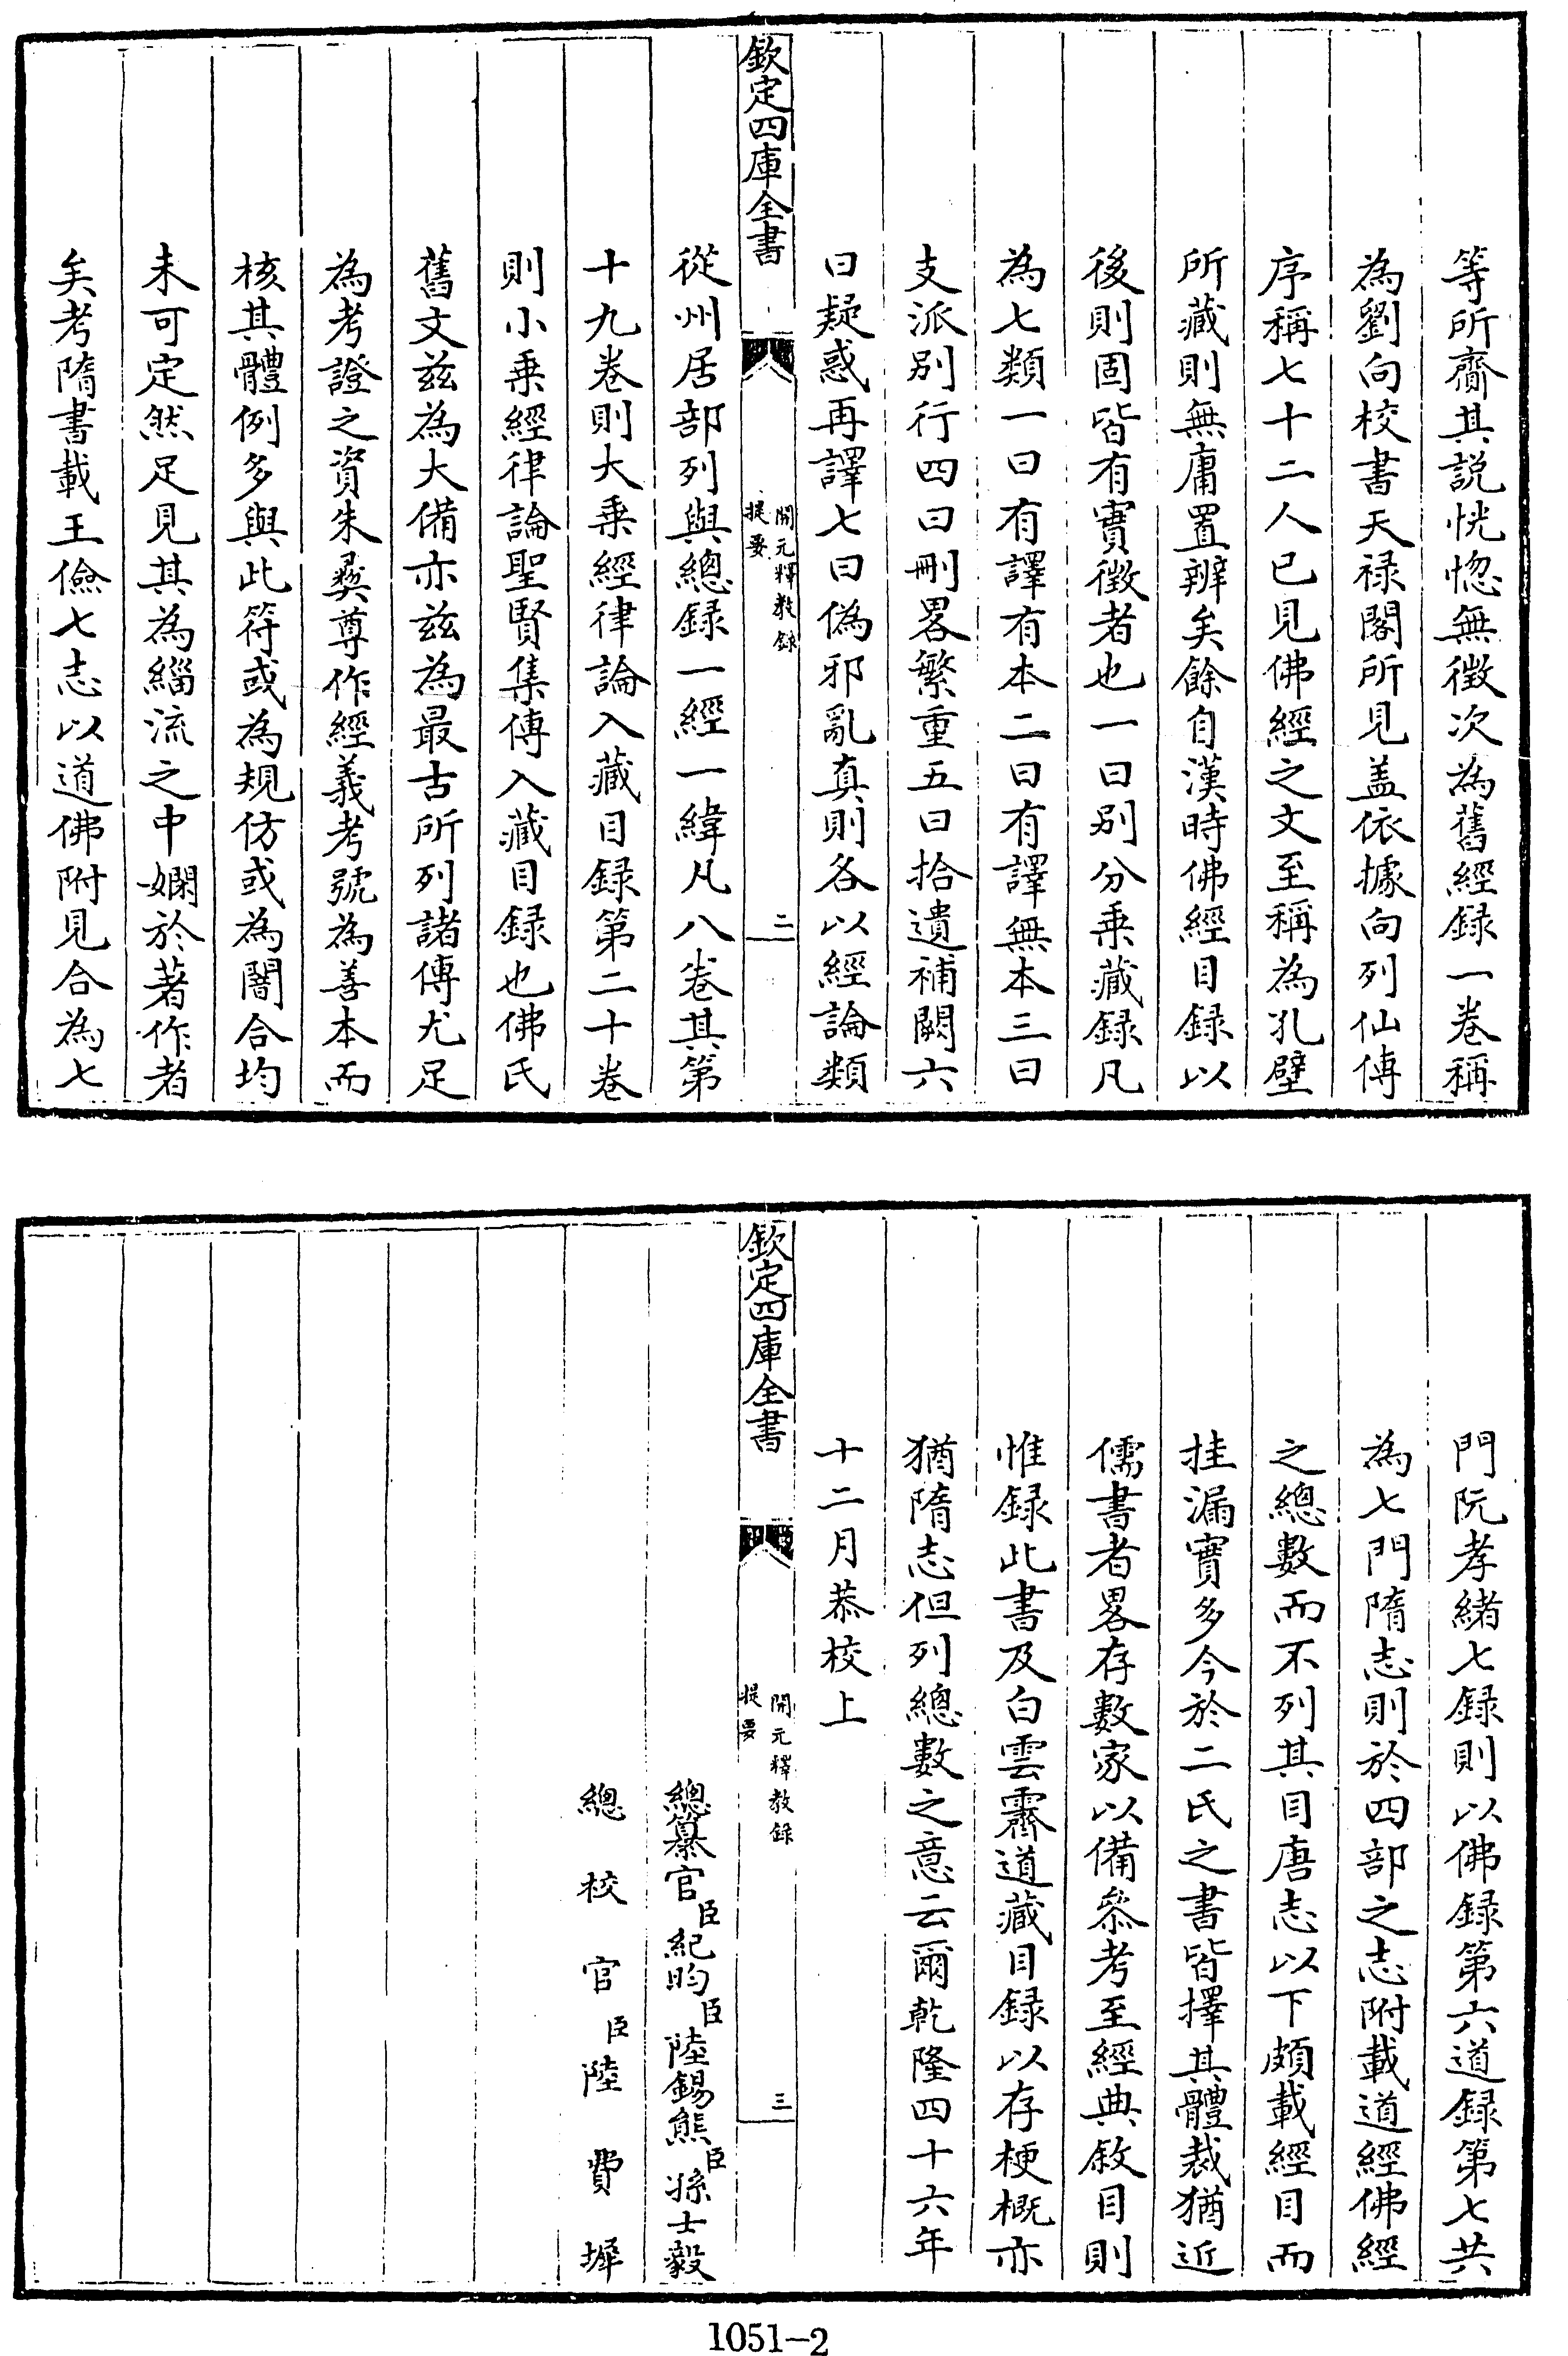 等所齎其説恍惚無徴次為舊經録一卷稱
為劉向校書天禄閣所見盖依據向列仙傳
序稱七十二人已見佛經之文至稱為孔壁
所藏則無庸置辨矣餘自漢時佛經目録以
後則固皆有實徴者也一曰别分乗藏録凡
為七類一曰有譯有本二曰有譯無本三曰
支派别行四曰刪畧繁重五曰拾遺補闕六
曰疑惑再譯七曰偽邪亂真則各以經論類
欽定四庫全書
開元釋教録
提要
二
從州居部列與總録一經一緯凡八卷其第
十九卷則大乗經律論入藏目録第二十卷
則小乗經律論聖賢集傳入藏目録也佛氏
舊文兹為大備亦兹為最古所列諸傳尤足
為考證之資朱彛尊作經義考號為善本而
核其體例多與此符或為規仿或為闇合均
未可定然足見其為緇流之中嫻於著作者
矣考隋書載王儉七志以道佛附見合為七
門阮孝緒七録則以佛録第六道録第七共
為七門隋志則於四部之志附載道經佛經
之總數而不列其目唐志以下頗載經目而
挂漏實多今於二氏之書皆擇其體裁猶近
儒書者畧存數家以備叅考至經典敘目則
惟録此書及白雲霽道藏目録以存梗概亦
猶隋志但列總數之意云爾乾隆四十六年
十二月恭校上
欽定四庫全書
開元釋教録
提要
三
總纂官臣紀昀臣陸錫熊臣孫士毅
總校官臣陸費墀
1051-2